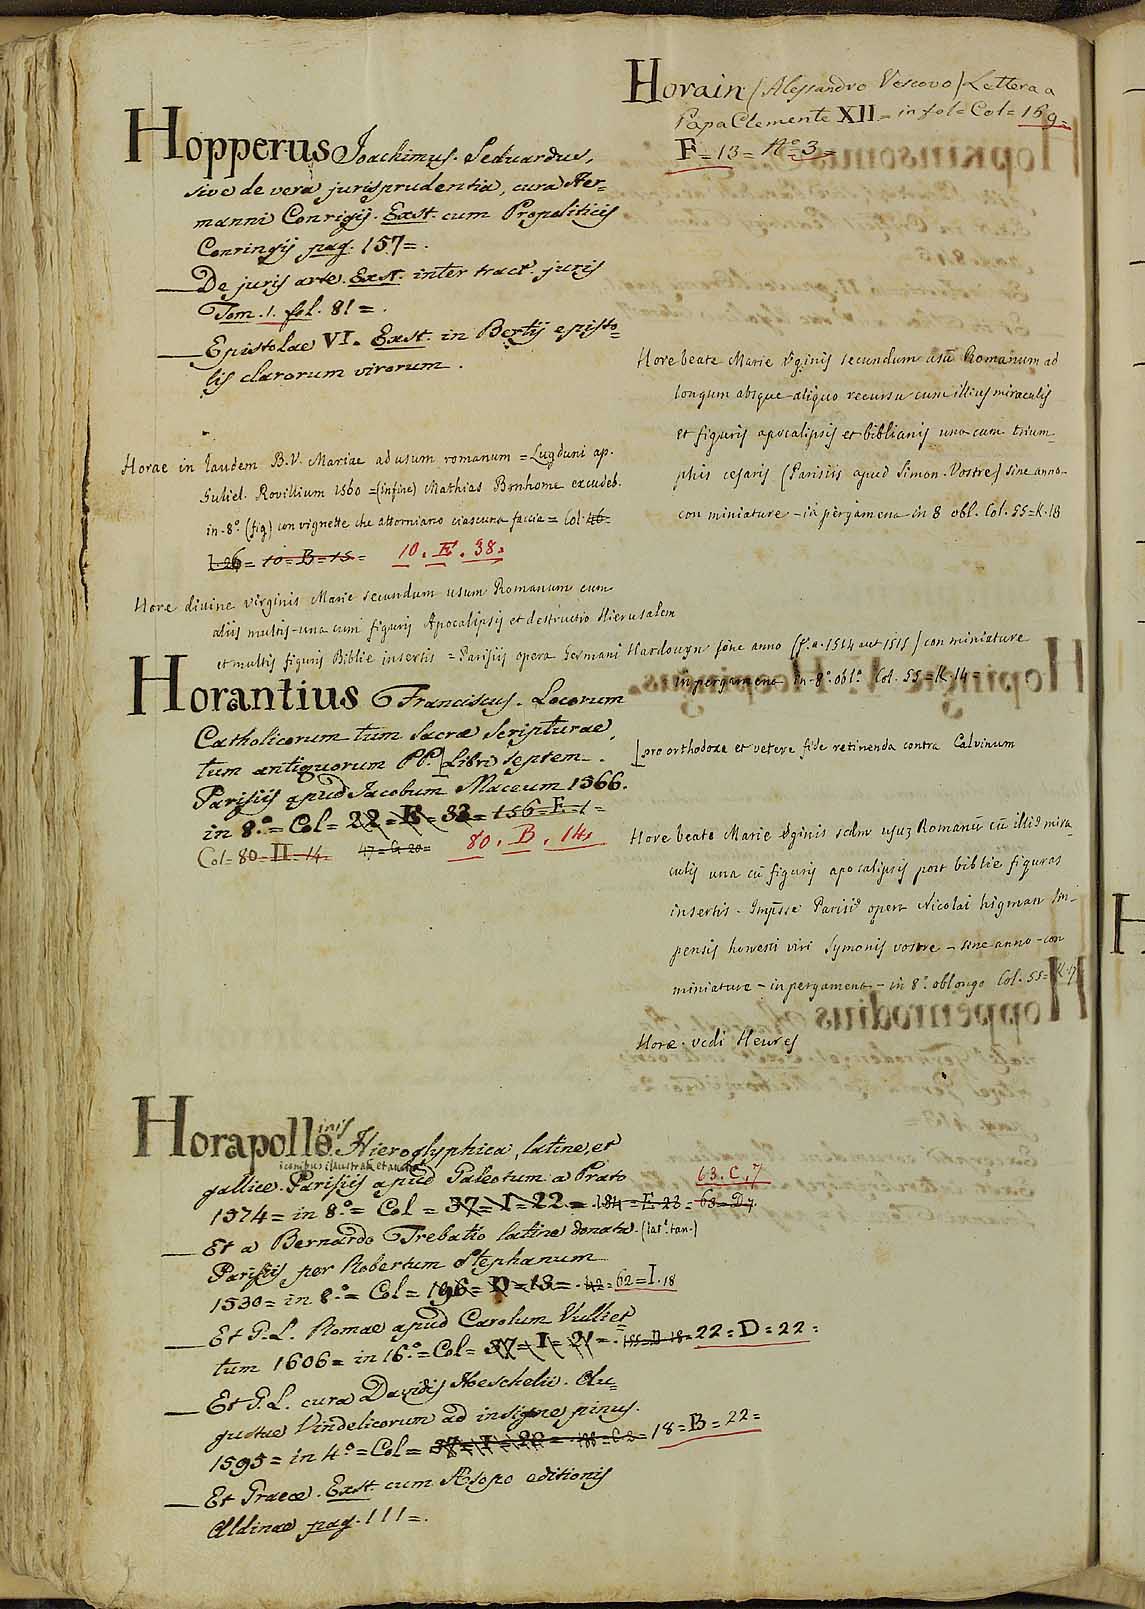 Hopperus Joachimus. Seduardus,
sive de vera jurisprudentia, cura Her=
manni Conrigij. Exst. cum Propoliticis
Conringij pag. 157=.
— De juris arte. Exst. inter tract. juris
Tom. 1. fol. 81=.
— Epistolae VI. Exst. in Bertij episto=
lis clarorum virorum.
Horae in laudem B.V. Mariae ad usum romanum = Lugduni ap.
Guliel. Rovillium 1560 = (in fine) Mathias Bonhome excudeb.
in-8.° (fig) con vignette che attorniano ciascuna faccia = Col. 46-
I-26= 10=B=15= 10. E. 38.
Hore divine virginis Marie secundum usum Romanum cum
aliis multis-una cum figuris Apocalipsis et destructio Hierusalem
et multis figuris Biblie insertis = Parisiis opera Germani Hardouyn sine anno (f.a. 1514 aut 1515) con miniature
in pergamena in-8.° obl.° Col. 55=K.14=
Horantius Franciscus. Locorum
Catholicorum tum Sacrae Scripturae,
tum antiquorum PP. [Libri Septem.
[pro orthodoxe et vetere fide retinenda contra Calvinum
Parisiis apud Jacobum Maceum 1566.
in 8.°= Col= 22=K=32=156=F=1=
Col=80=II=14= 47=G.20= 80. B. 14.
Horapollo inis Hieroglyphica, latine, et
iconibus illustrata et aucta
gallice. Parisiis apud Galeotum a Prato
1574= in 8.°= Col = 37=I=22=.184=E.23=68=D.7.
63.C.7
— Et a Bernardo Trebatio latine donata. (lat.° tan.)
Parisiis per Robertum Stephanum
1530= in 8.°= Col= 196=D=13=.42=62=I.18
— Et G.L. Romae apud Carolum Vulliet
tum 1606= in 16.°=Col= 37=I=21=.155=D.18=22=D=22=
— Et G.L. cura Davidis Hoeschelii. Au=
gustae Vindelicorum ad insigne pinus.
1595= in 4.°=Col= 37=I=20= 18=B=22=
— Et Graece. Exst. cum Aesopo editionis
Aldinae pag. 111=.
Horain (Alessandro Vescovo) Lettera a
Papa Clemente XII= in fol= Col= 159=
F=13= N°3=
Hore beate Marie v̄ginis secundum usū Romanum ad
longum absque aliquo recursu cum illius miraculis
et figuris apocalipsis et biblianis una cum trium_
phis cesaris (Parisiis apud Simon. Vostre) sine anno-
con miniature - in pergamena in 8 obl. Col. 55=K.18
Hore beate Marie v̄ginis scdm usuz Romanū cū illiᵒ mira_
culis una cū figuris apocalipsis post biblie figuras
insertis. Impsse Parisiᵒ opera Nicolai higman im_
pensis honesti viri Symonis vostre - sine anno - con
miniature - in pergamena - in 8.° oblongo Col. 55=K.17
Horae. vedi Heures